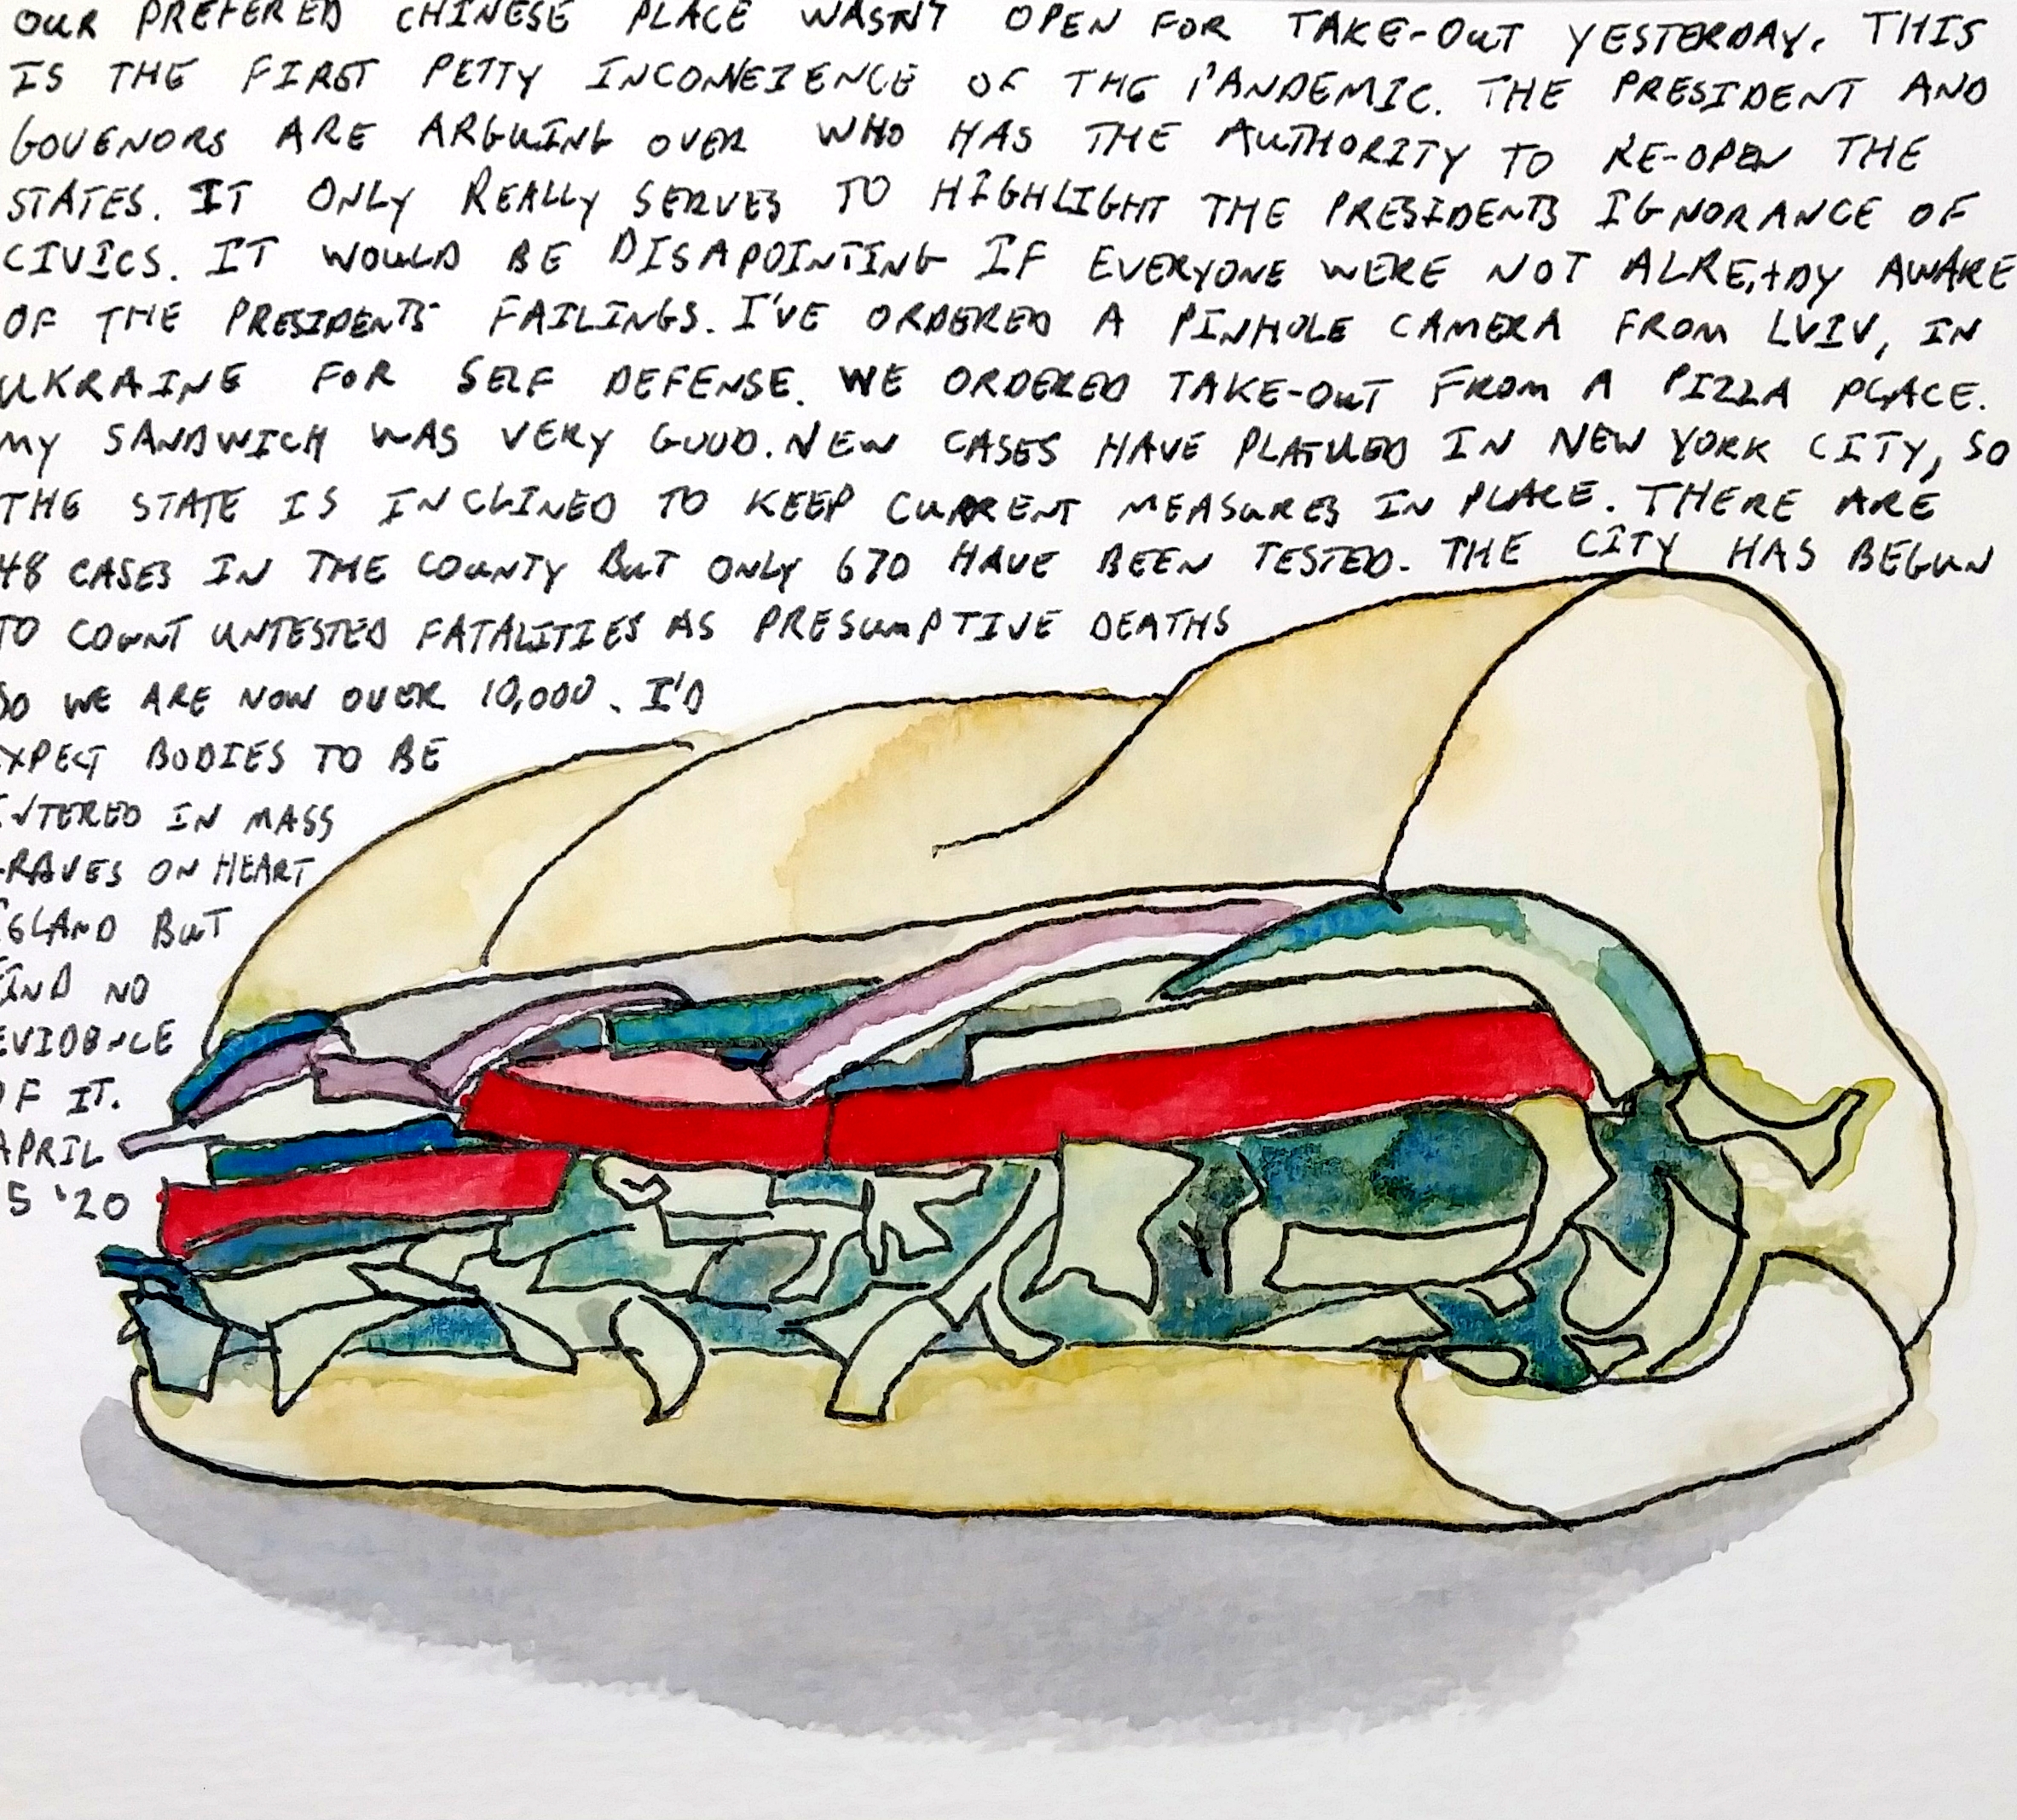 OUR PREFERED CHINESE PLACE WASN'T OPEN FOR TAKE-OUT YESTERDAY. THIS
IS THE FIRST PETTY INCONVEIENCE OF THE PANDEMIC. THE PRESIDENT AND
GOVENORS ARE ARGUING OVER WHO HAS THE AUTHORITY TO RE-OPEN THE
STATES. IT ONLY REALLY SERVES TO HIGHLIGHT THE PRESIDENTS IGNORANCE OF
CIVICS. IT WOULD BE DISAPOINTING IF EVERYONE WERE NOT ALREADY AWARE
OF THE PRESIDENTS FAILINGS. I'VE ORDERED A PINHOLE CAMERA FROM LVIV, IN
UKRAINE FOR SELF DEFENSE. WE ORDERED TAKE-OUT FROM A PIZZA PLACE.
MY SANDWICH WAS VERY GOOD. NEW CASES HAVE PLATUED IN NEW YORK CITY, SO
THE STATE IS INCLINED TO KEEP CURRENT MEASURES IN PLACE. THERE ARE
48 CASES IN THE COUNTY BUT ONLY 670 HAVE BEEN TESTED. THE CITY HAS BEGUN
TO COUNT UNTESTED FATALITIES AS PRESUMPTIVE DEATHS
SO WE ARE NOW OVER 10,000. I'D
EXPECT BODIES TO BE
INTERED IN MASS
GRAVES ON HEART
ISLAND BUT
FIND NO
EVIDENCE
OF IT.
APRIL
5 '20